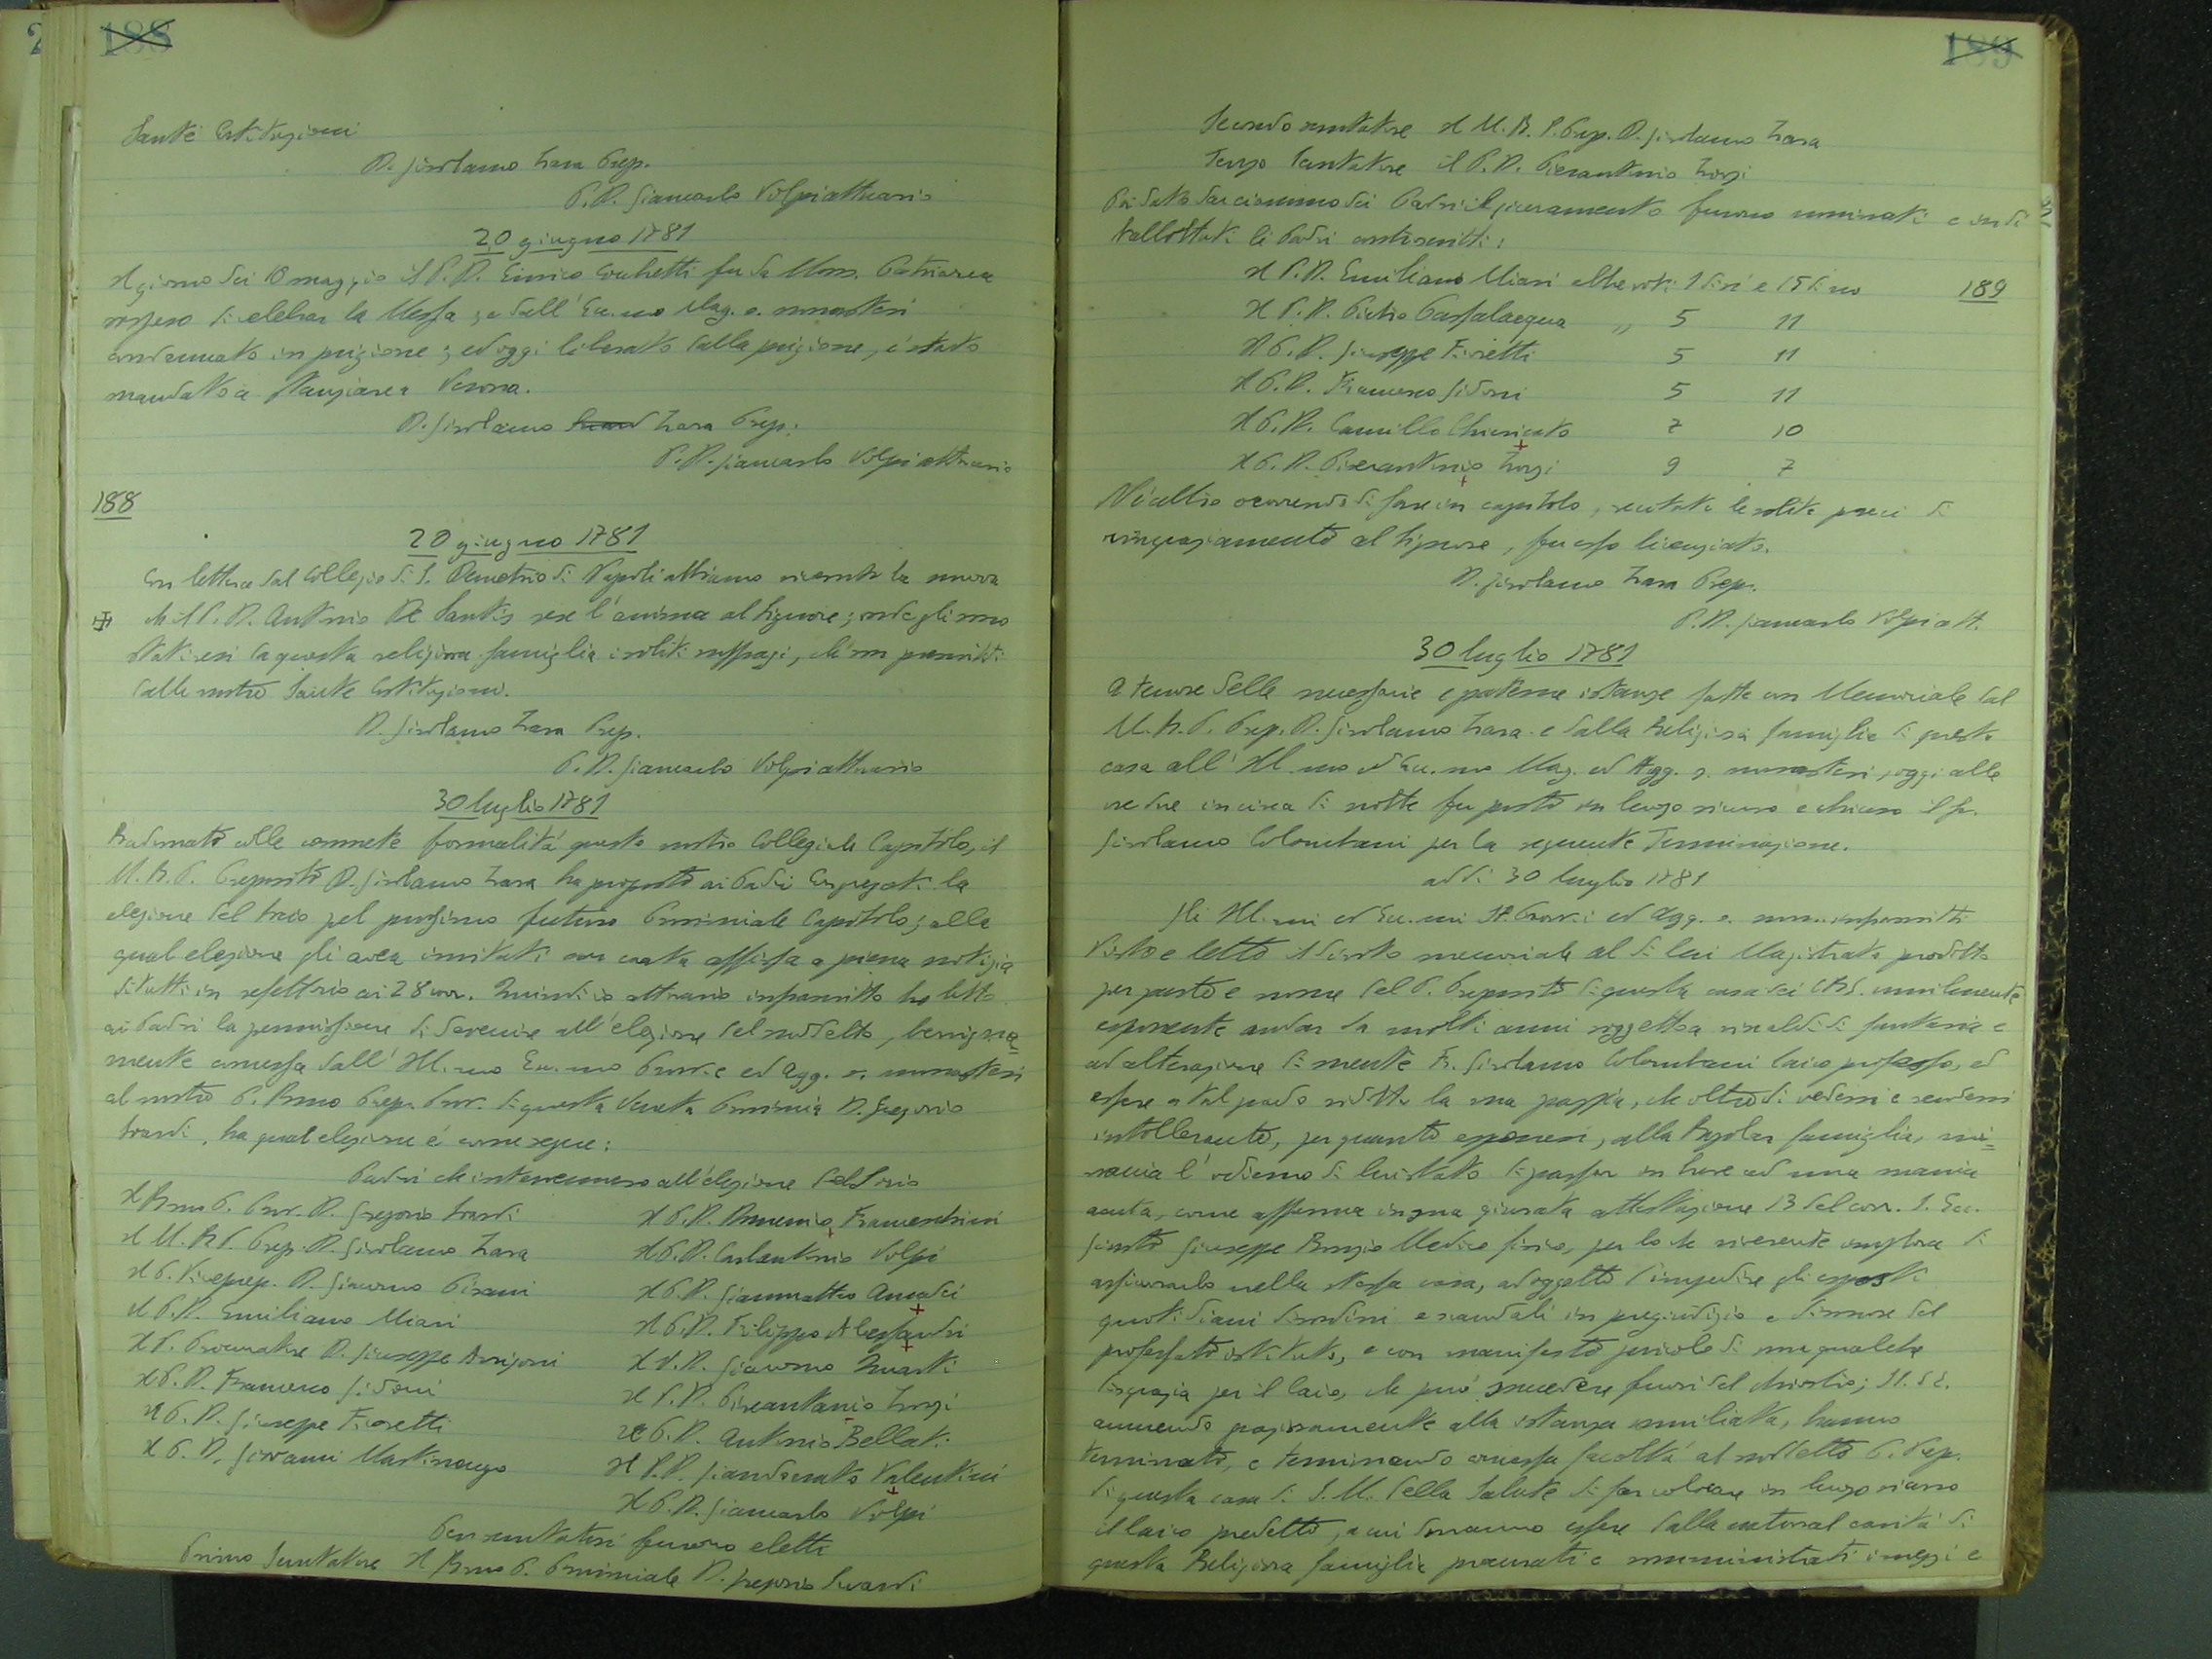 188
Sante Costituzioni
D. Girolamo Zara Prep.
P.D. Giancarlo Volpi attuario
20 giugno 1781
Il giorno dei 10 maggio il P.D. Enrico Cochetti fu da Mons. Patriarca
sospeso di celebrar la Messa; e dall' Ecc.mo Mag. s. monasteri
condannato in prigione; ed oggi liberato dalla prigione, è stato
mandato a stanziare a Verona.
D. Girolamo Zara Prep.
P.D. Giancarlo Volpi attuario
188
20 giugno 1781
Con lettera dal Collegio di S. Demetrio di Napoli abbiamo ricevuto la nuova
ch il P.D. Antonio De Santis rese l'anima al Signore; onde gli sono
stati resi da questa religiosa famiglia i soliti suffragi, ch son prescritti
dalle nostre Sante Costituzioni.
D. Girolamo Zara Prep.
P.D. Giancarlo Volpi attuario
30 luglio 1781
Radunato colle consuete formalità questo nostro Collegiale Capitolo, il
M.R.P. Preposito D. Girolamo Zara ha proposto ai Padri Congregati la
elezione del Socio pel prossimo futuro Provinciale Capitolo; alla
qual elezione gli avea invitati con carta affissa a piena notizia
di tutti in refettorio ai 28 corr. Quindi io attuario infrascritto ho letto
ai Padri la permissione di devenire all' elezione del suddetto, benigna=
mente concessa dall' Ill.mo Ecc.mo Provv.e ed Agg. s. monasteri
al nostro P. Rmo Prep. Prov. di questa Veneta Provincia D. Gregorio
Suardi, la qual elezione è come segue:
Padri ch intervennero all'elezione del Socio
Il Rmo P. Prov. D. Gregorio Suardi
Il M.R.P. Prep. D. Girolamo Zara
Il P. Viceprep. D. Giacomo Pisani
Il P.D. Emiliano Miari
Il P. Procuratore D. Giuseppe Arrigoni
Il P.D. Francesco Gidoni
Il P.D. Giuseppe Fioretti
Il P.D. Giovanni Martinengo
Il P.D. Franceschini
Il P.D. Carlantonio Volpi
Il P.D. Giammatteo Amadei
Il P.D. Filippo Alessandri
Il P.D. Giacomo Quarti
Il P.D. Pierantonio Zorzi
Il P.D. Antonio Bellati
Il P.D. Giandonato Valentini
Il P.D. Giancarlo Volpi
Per scrutatori furono eletti
Primo Scrutatore Il Rmo P. Provinciale D. Gregorio Suardi
189
Secondo scrutatore Il M.R.P. Prep. D. Girolamo Zara
Terzo Scrutatore il P.D. Pierantonio Zorzi
Poi dato da ciascuno dei Padri il giuramento furono nominati e indi
ballottati li Padri sottoscritti:
Il P.D. Emiliano Miari ebbe voti 1 di sì e 15 di no
189
Il P.D. Pietro Passalacqua " 5 11
Il P.D. Giuseppe Fioretti 5 11
Il P.D. Francesco Gidoni 5 11
Il P.D. Camillo Chiericato 7 10
Il P.D. Pierantonio Zorzi 9 7
Né altro occorrendo di fare in capitolo, recitate le solite preci di
ringraziamento al Signore, fu esso licenziato.
D. Girolamo Zara Prep.
P.D. Giancarlo Volpi att.
30 luglio 1781
A tenore delle necessarie e paterne istanze fatte con Memoriale dal
M.R.P. Prep. D. Girolamo Zara e dalla Religiosa famiglia di questa
casa all' Ill.mo ed Ecc.mo Mag. ed Agg. s. monasteri, oggi alle
ore due incirca di notte fu posto in luogo sicuro e chiuso il fr.
Girolamo Colombani per la seguente Terminazione.
addì 30 luglio 1781
Gli Ill.mi ed Ecc.mi Sr. Provv.i ed Agg. s. mon. infrascritti
Visto e letto il divoto memoriale al di lui Magistrato prodotto
per parte e nome del P. Preposito di questa casa dei CRS. umilmente
esponente andar da molti anni soggetto a riscaldi di fantasia e
ad alterazione di mente Fr. Girolamo Colombani laico professo, ed
essere a tal grado ridotta la sua pazzia, che oltre di vedersi e rendersi
intollerante, per quanto esponesi, alla Regolar famiglia, mi=
naccia l'odierno di lui stato di passar in breve ad una mania
acuta, come afferma in una giurata attestazione 13 del corr. S. Ecc.
Giusto Giuseppe Medico fisico, per lo che riverente implora di
assicurarlo nella stessa casa, ad oggetto d'impedire gli esposti
quotidiani disordini e scandali in pregiudizio e disonore del
professato istituto, e con manifesto pericolo di una qualche
disgrazia per il laico, che può succedere fuori del chiostro; SS. EE.
annuendo graziosamente alla istanza umiliata, hanno
terminato, e terminando concessa facoltà al suddetto P. Prep.
di questa casa di S.M. della Salute di far collocare in luogo sicuro
il laico predetto, a cui dovranno essere dalla natural carità di
questa Religiosa famiglia procurati e somministrati i mezzi e